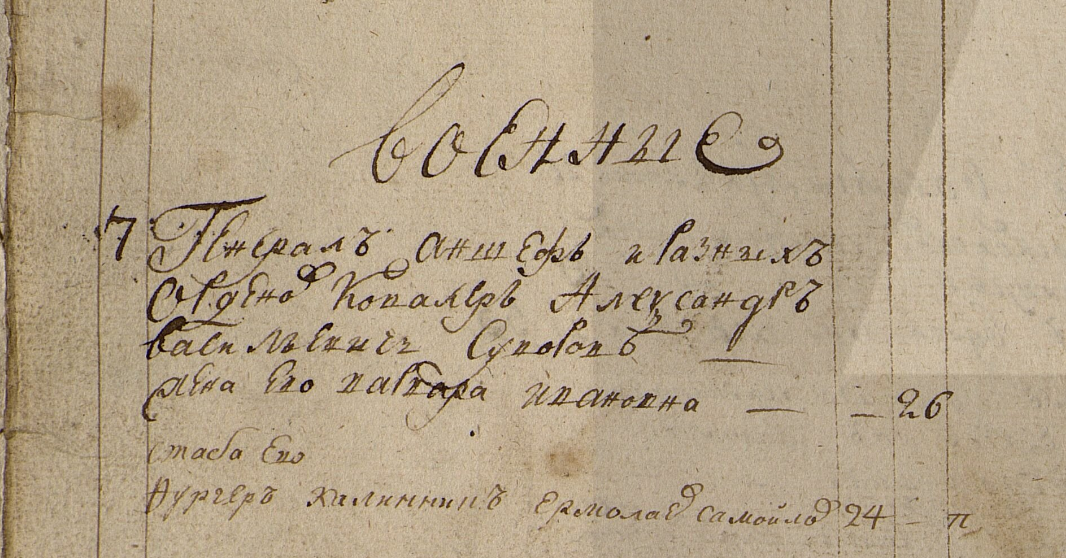 военные
7 Генералъ аншефъ и разныхъ
ордено⁠в Кавалеръ Александръ
васильевичь Суворовъ —
жена Ево варвара ивановна — — 26
штаба Ево
калининъ ермолаев самойлов 24 – п